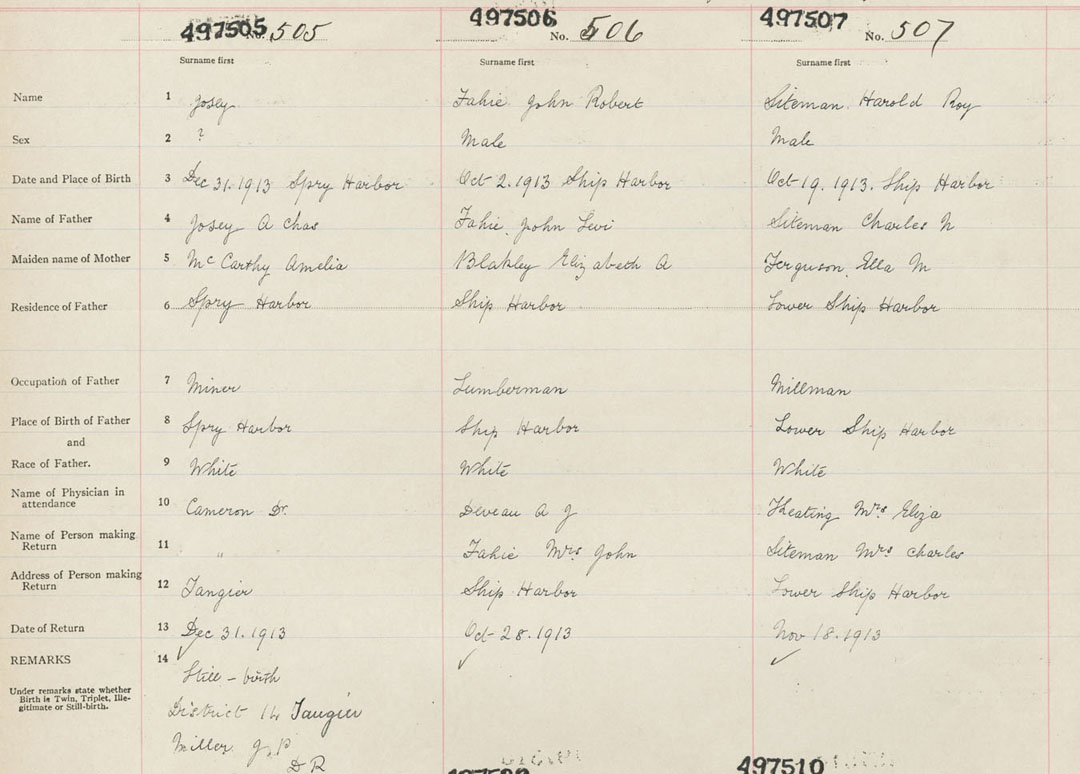 497505 497506 497507
No. 505 No. 506 No. 507
Surname first Surname first Surname first
Name 1 Josey Fahie John Robert Siteman Harold Roy
Sex 2 ? Male Male
Date and Place of Birth 3 Dec 31. 1913 Spry Harbor Oct 2. 1913 Ship Harbor Oct 19. 1913. Ship Harbor
Name of Father 4 Josey A Chas Fahie, John Levi Siteman Charles N
Maiden name of Mother 5 McCarthy Amelia Blakley Elizabeth A Ferguson, Ella M
Residence of Father 6 Spry Harbor Ship Harbor Lower Ship Harbor
Occupation of Father 7 Miner Lumberman Millman
Place of Birth of Father 8 Spry Harbor Ship Harbor Lower Ship Harbor
and
Race of Father. 9 White White White
Name of Physician in
attendance 10 Cameron Dr. Deveau A J Keating Mrs Eliza
Name of Person making
Return 11 " Fahie Mrs John Siteman Mrs Charles
Address of Person making
Return 12 Tangier Ship Harbor Lower Ship Harbor
Date of Return 13 Dec 31. 1913 Oct 28. 1913 Nov 18. 1913
REMARKS 14 ✓ ✓ ✓
Still - birth
Under remarks state whether
Birth is Twin, Triplet, Ille-
gitimate or Still-birth.
District 14 Tangier
Miller J. P
D R
497510